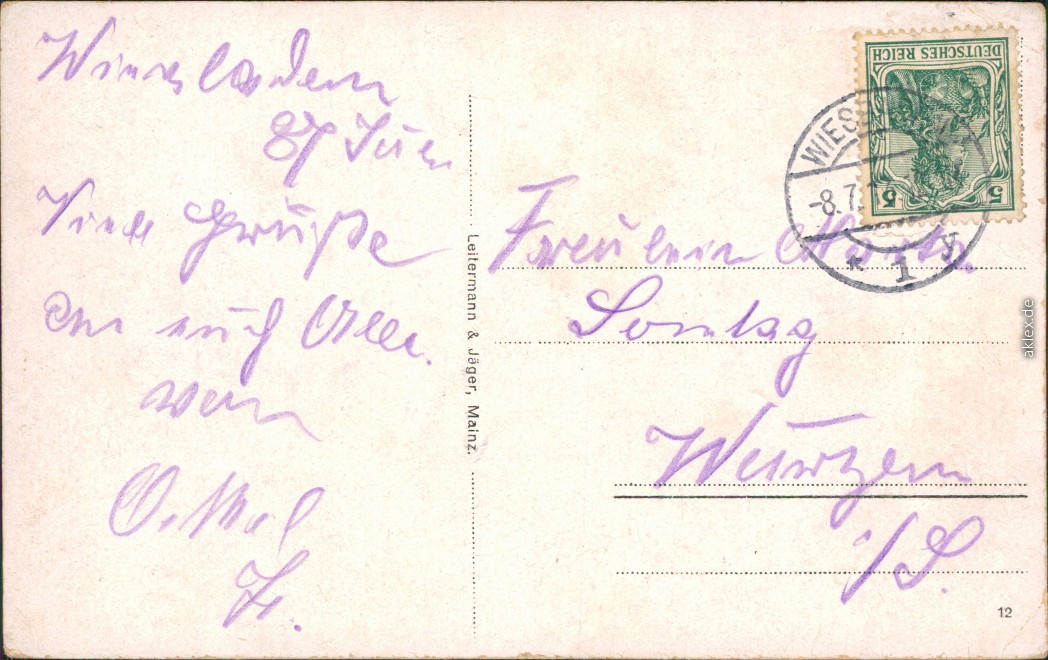 Wiesbaden
8/7
Viele Grüße
an euch Alle.
von
Onkel
Leitermann & Jäger, Mainz.
DEUTSCHES REICH
5 5
WIESB
-8.7.
* 1 y
Fräulein
Sontag
Wurzen
i/S.
12
aklex.de